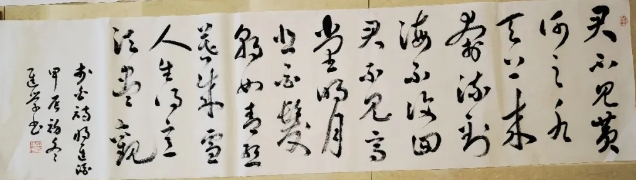 君不见黄
河之水
天上来
奔流到
海不复回
君不见高
堂明
悲白髮
朝如青丝
暮成雪
人生得意
须尽歡
李白诗将进酒
甲辰初冬
书